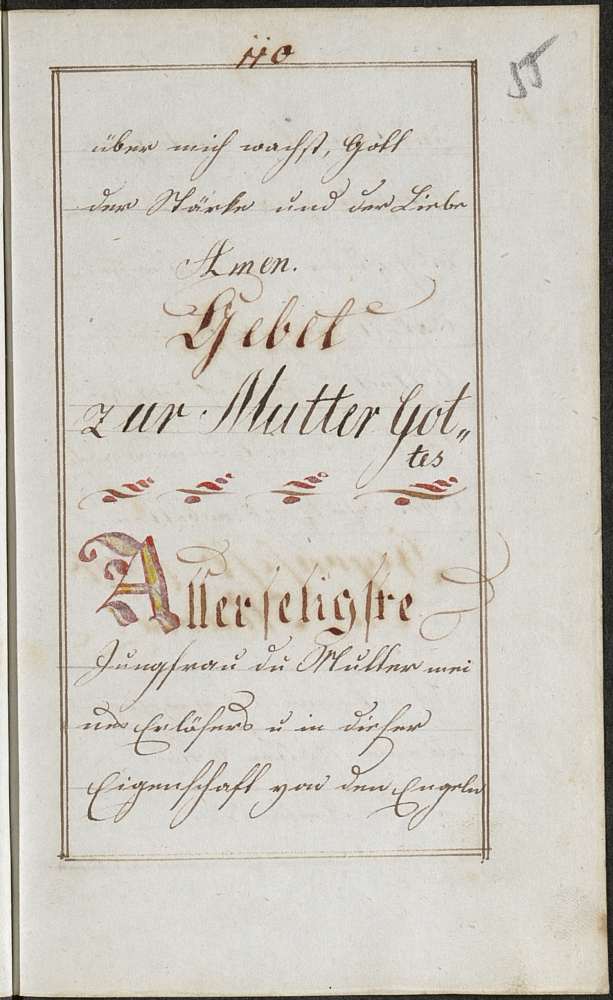 110
55
über mich wachst, Gott
der Stärke und der Liebe
Amen.
Gebet
zur Mutter Got„
tes
Allerseligste
Jungfrau du Mutter mei
nes Erlösers u in dieser
Eigenschaft von den Engeln